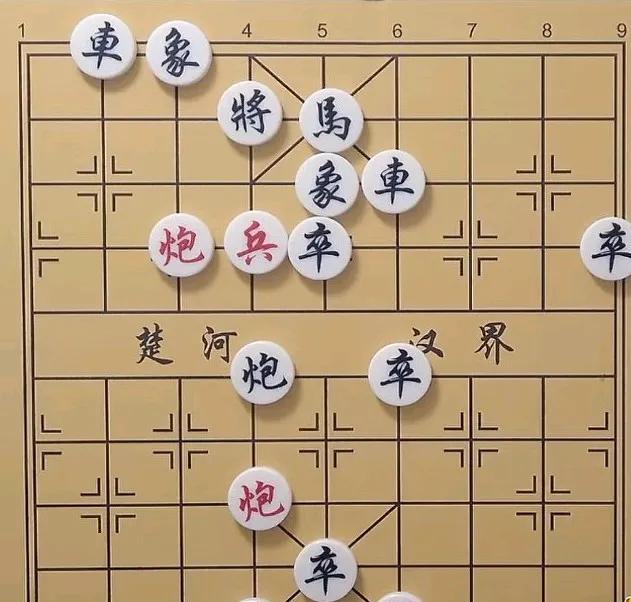 1 4 5 6 7 8 9
車 象
將 馬
象 車
炮 兵 卒 卒
楚 河 汉 界
炮 卒
炮
卒